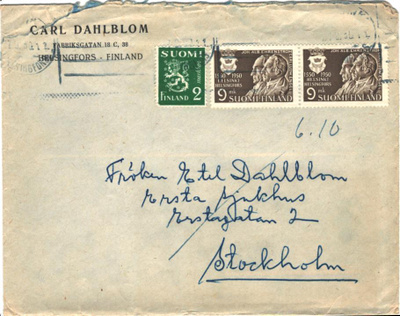 CARL DAHLBLOM
FABRIKSGATAN 18 C, 38
HELSINGFORS - FINLAND
SUOMI
FINLAND 2
1550 1950
HELSINKI
HELSINGFORS
9 SUOMI-FINLAND
1550 1950
HELSINKI
HELSINGFORS
9 SUOMI-FINLAND
6.10
Fröken Etel Dahlblom
Ersta Sjukhus
Erstagatan 2
Stockholm